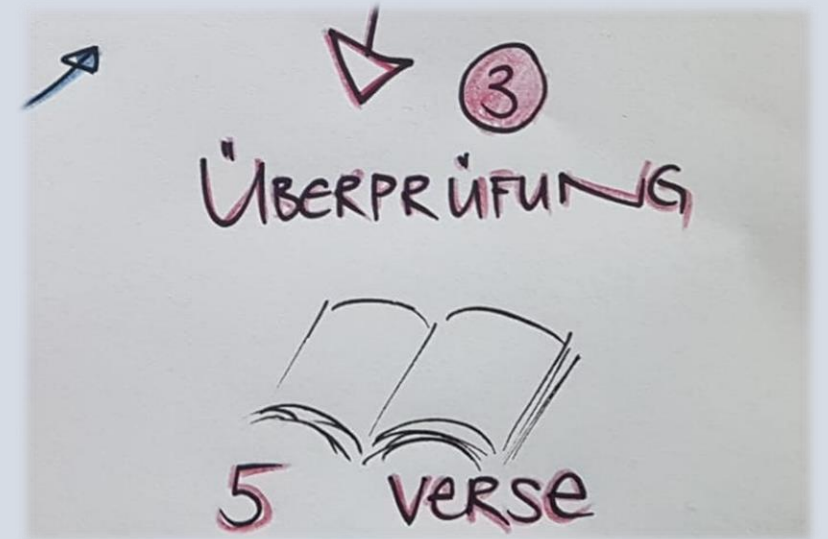 3
ÜBERPRÜFUNG
5 VERSE